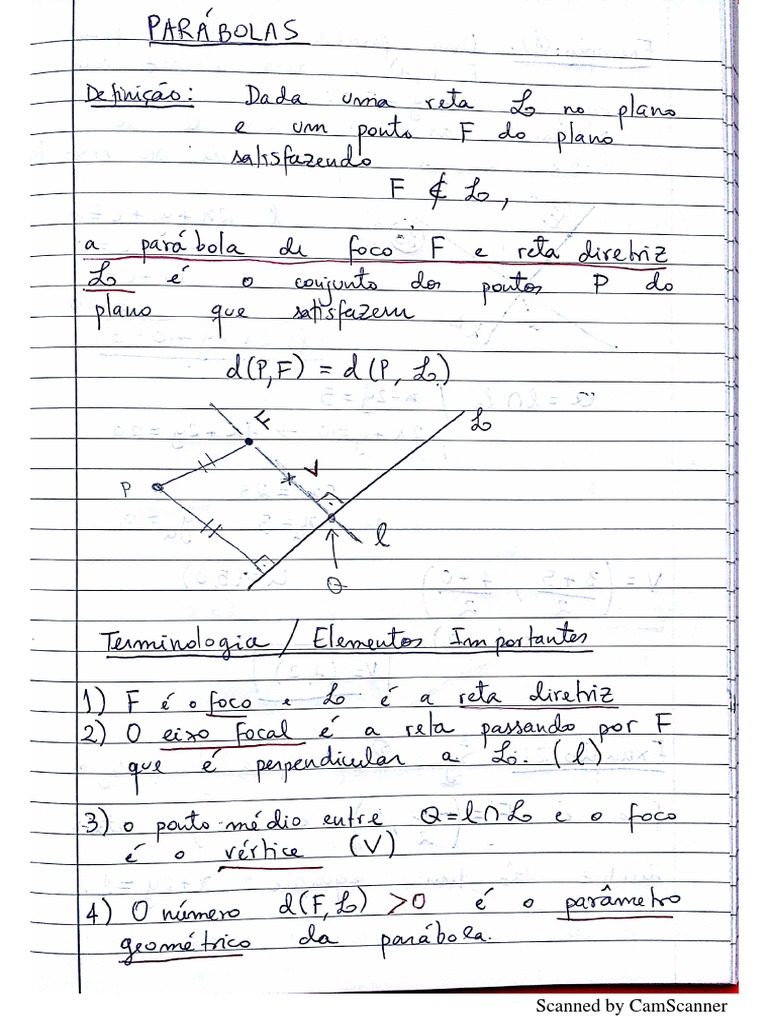 PARÁBOLAS
Definição: Dada uma reta L no plano
e um ponto F do plano
satisfazendo
F ∉ L,
a parábola de foco F e reta diretriz
L é o conjunto dos pontos P do
plano que satisfazem
d(P,F) = d(P, L)
F
L
V
P
l
Q
Terminologia / Elementos Importantes
1) F é o foco e L é a reta diretriz
2) O eixo focal é a reta passando por F
que é perpendicular a L. (l)
3) o ponto médio entre Q=l∩L e o foco
é o vértice (V)
4) O número d(F,L) >0 é o parâmetro
geométrico da parábola.
Scanned by CamScanner